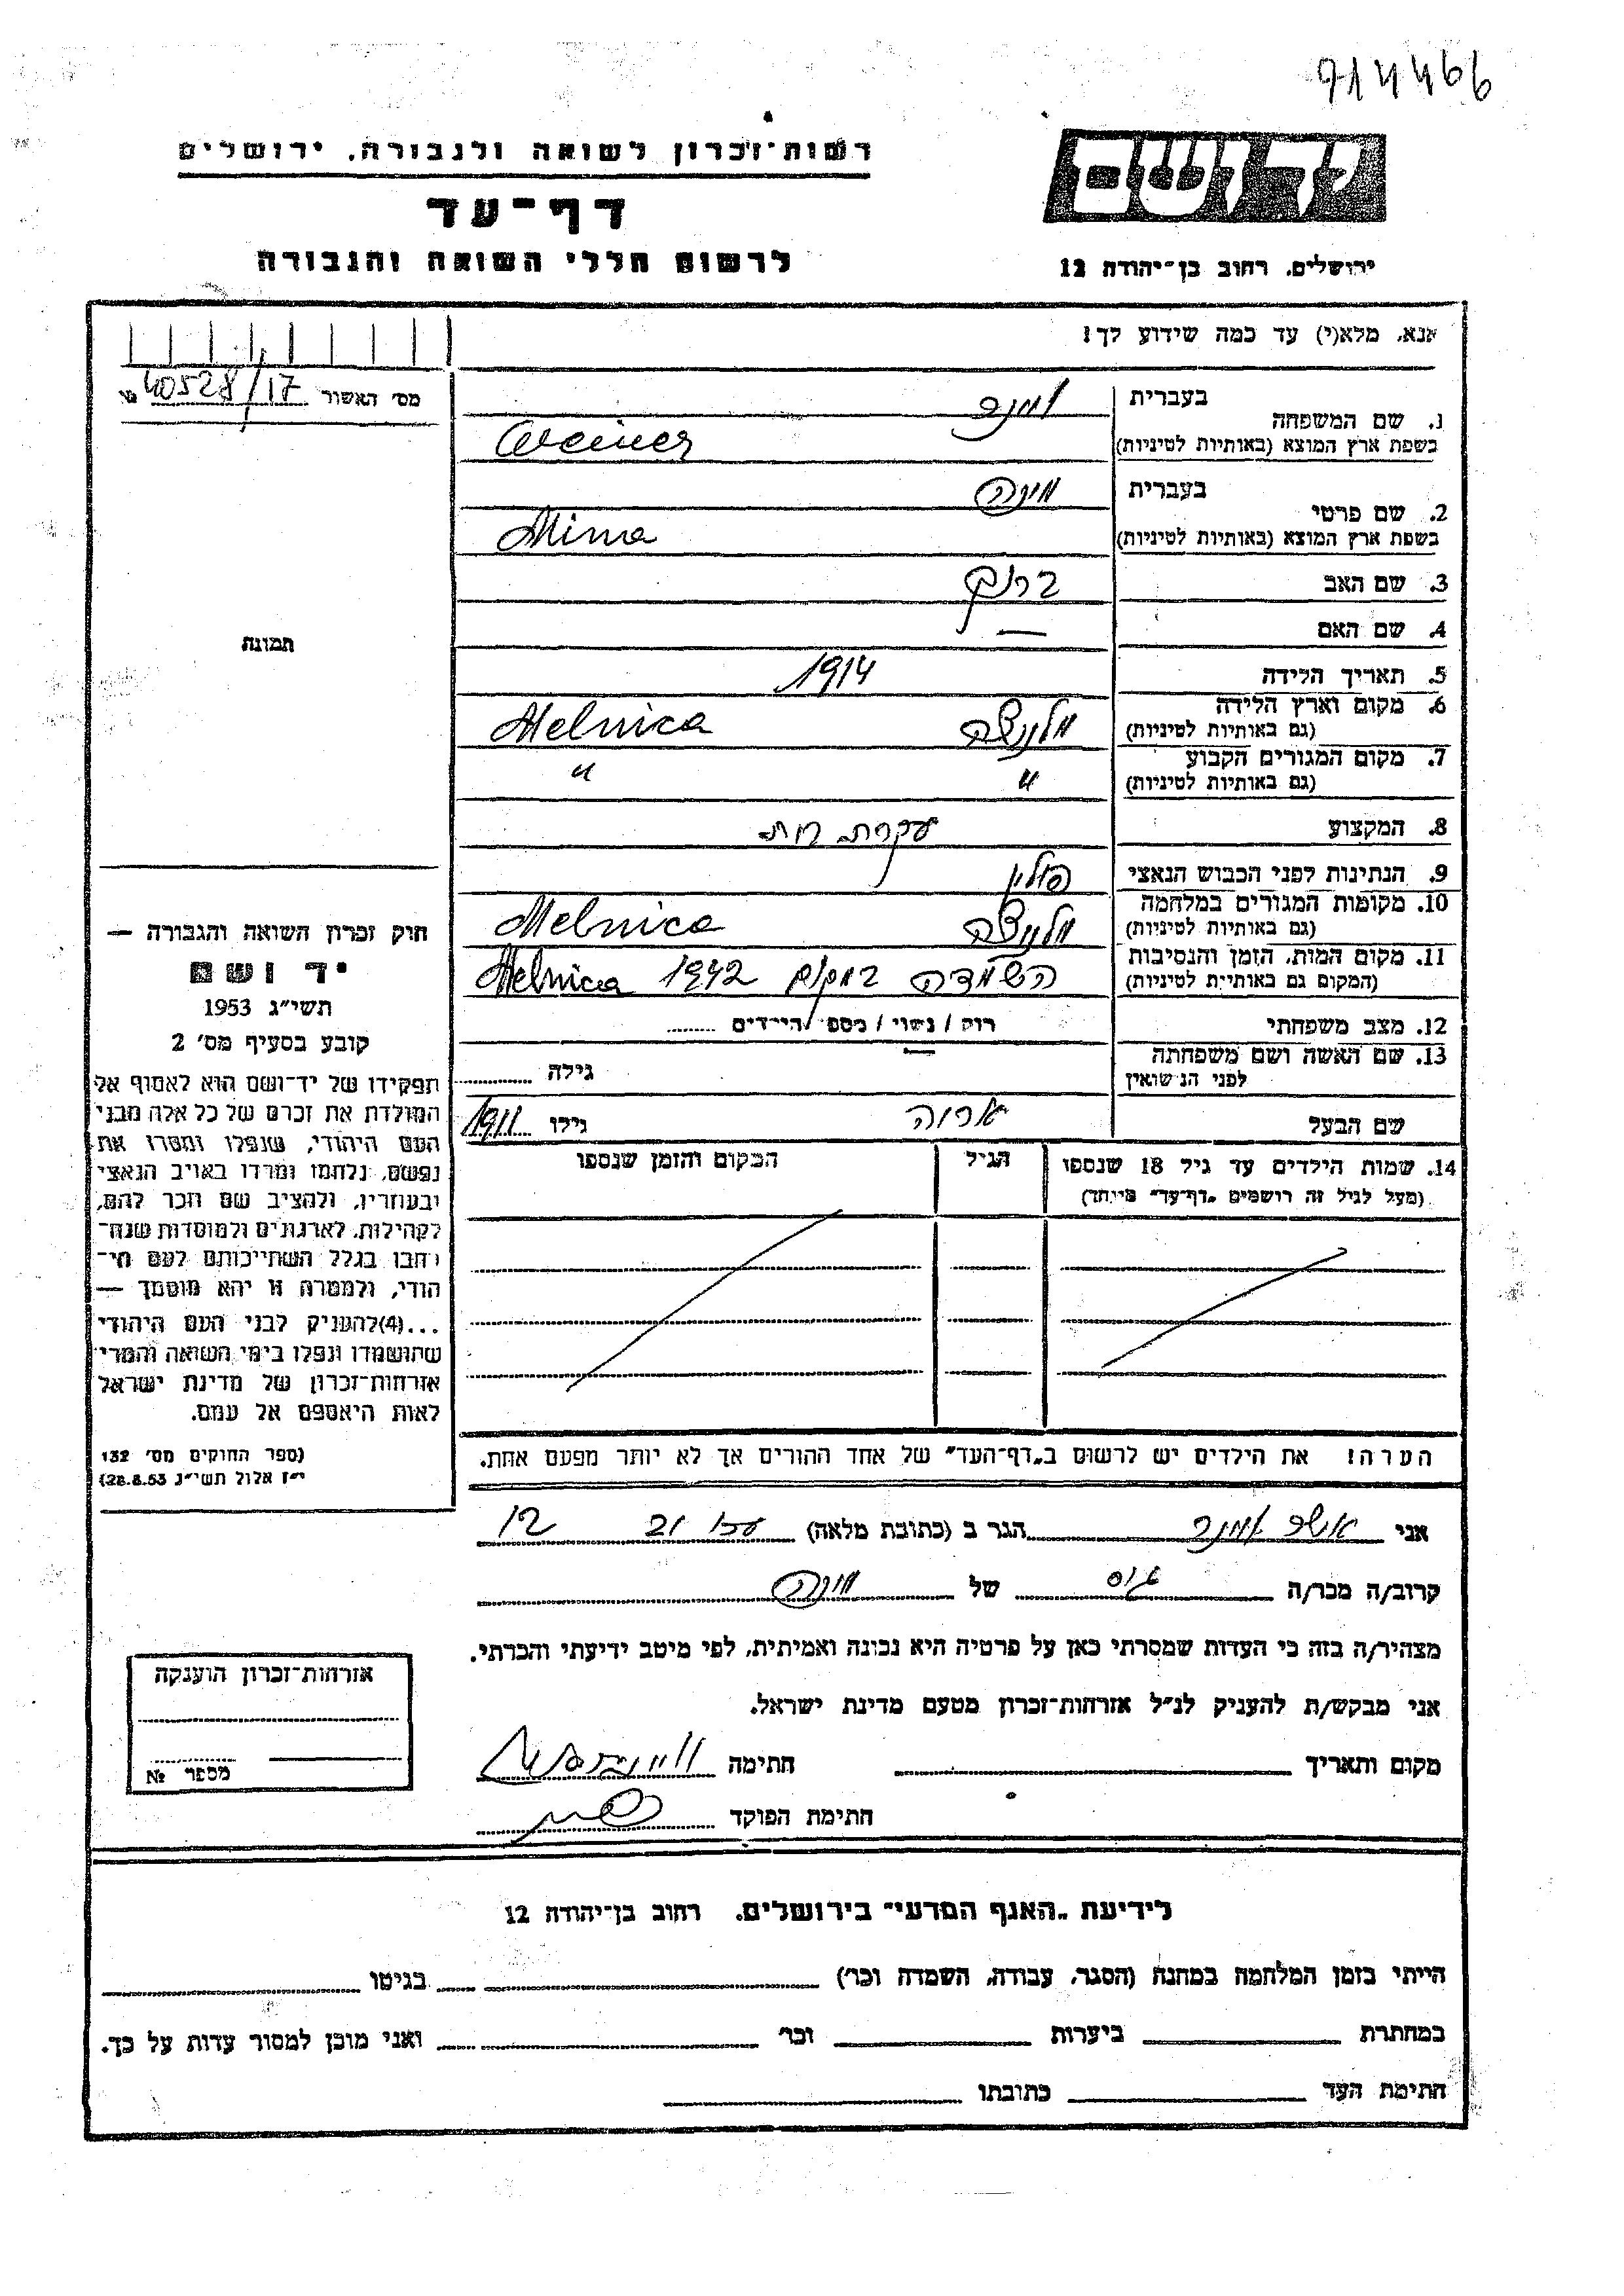 914466
רשות־זכרון לשואה ולגבורה, ירושלים
דף־עד
לרשום חללי השואה והגבורה
יד ושם
ירושלים, רחוב בן־יהודה 12
אנא, מלא(י) עד כמה שידוע לך!
מס׳ האשור 40528/17 №
תמונה
1. שם המשפחה
בעברית וינר
בשפת ארץ המוצא (באותיות לטיניות) Weiner
2. שם פרטי
בעברית מינה
בשפת ארץ המוצא (באותיות לטיניות) Mina
3. שם האב ברוך
4. שם האם —
5. תאריך הלידה 1914
6. מקום וארץ הלידה מלניצה Melnica
(גם באותיות לטיניות)
7. מקום המגורים הקבוע " "
(גם באותיות לטיניות)
8. המקצוע עקרת בית
9. הנתינות לפני הכבוש הנאצי פולין
10. מקומות המגורים במלחמה מלניצה Melnica
(גם באותיות לטיניות)
11. מקום המות, הזמן והנסיבות השמדה במקום 1942 Melnica
(המקום גם באותיות לטיניות)
12. מצב משפחתי רוק / נשוי / מספר הילדים
13. שם האשה ושם משפחתה — גילה
לפני הנישואין
שם הבעל אריה גילו 1911
14. שמות הילדים עד גיל 18 שנספו הגיל המקום והזמן שנספו
(מעל לגיל זה רושמים „דף־עד" מיוחד)
הערה! את הילדים יש לרשום ב„דף־העד" של אחד ההורים אך לא יותר מפעם אחת.
חוק זכרון השואה והגבורה —
יד ושם
תשי״ג 1953
קובע בסעיף מס׳ 2
תפקידו של יד־ושם הוא לאסוף אל
המולדת את זכרם של כל אלה מבני
העם היהודי, שנפלו ומסרו את
נפשם, נלחמו ומרדו באויב הנאצי
ובעוזריו, ולהציב שם וזכר להם,
לקהילות, לארגונים ולמוסדות שנח־
רבו בגלל השתייכותם לעם הי־
הודי, ולמטרה זו יהא מוסמך —
...(4)להעניק לבני העם היהודי
שהושמדו ונפלו בימי השואה והמרי
אזרחות־זכרון של מדינת ישראל
לאות היאספם אל עמם.
(ספר החוקים מס׳ 132
י״ז אלול תשי״ג 28.8.53)
אני אשר וינר הגר ב (כתובת מלאה) 21 12
קרוב/ה מכר/ה גיס של מינה
מצהיר/ה בזה כי העדות שמסרתי כאן על פרטיה היא נכונה ואמיתית, לפי מיטב ידיעתי והכרתי.
אני מבקש/ת להעניק לנ״ל אזרחות־זכרון מטעם מדינת ישראל.
מקום ותאריך חתימה
חתימת הפוקד
אזרחות־זכרון הוענקה
מספר №
לידיעת „האגף המדעי" בירושלים, רחוב בן־יהודה 12
הייתי בזמן המלחמה במחנה (הסגר, עבודה, השמדה וכו׳) בגיטו
במחתרת ביערות וכו׳ ואני מוכן למסור עדות על כך.
חתימת העד כתובתו